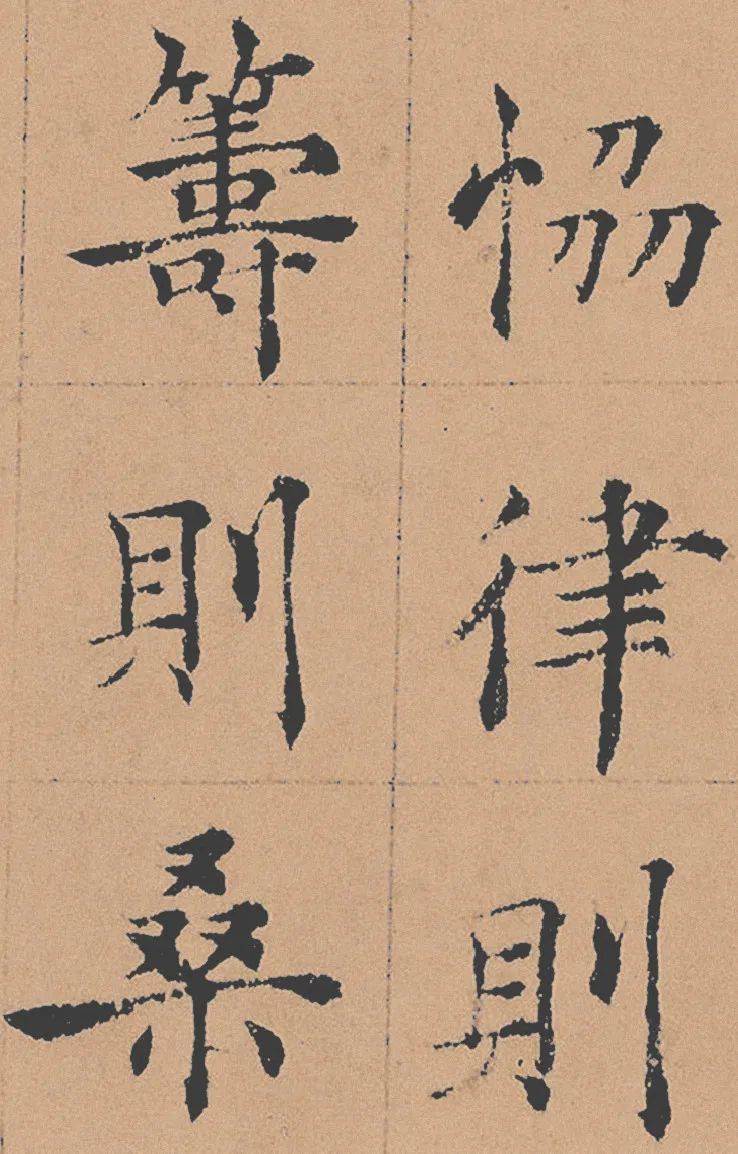 恊律則
籌則桑